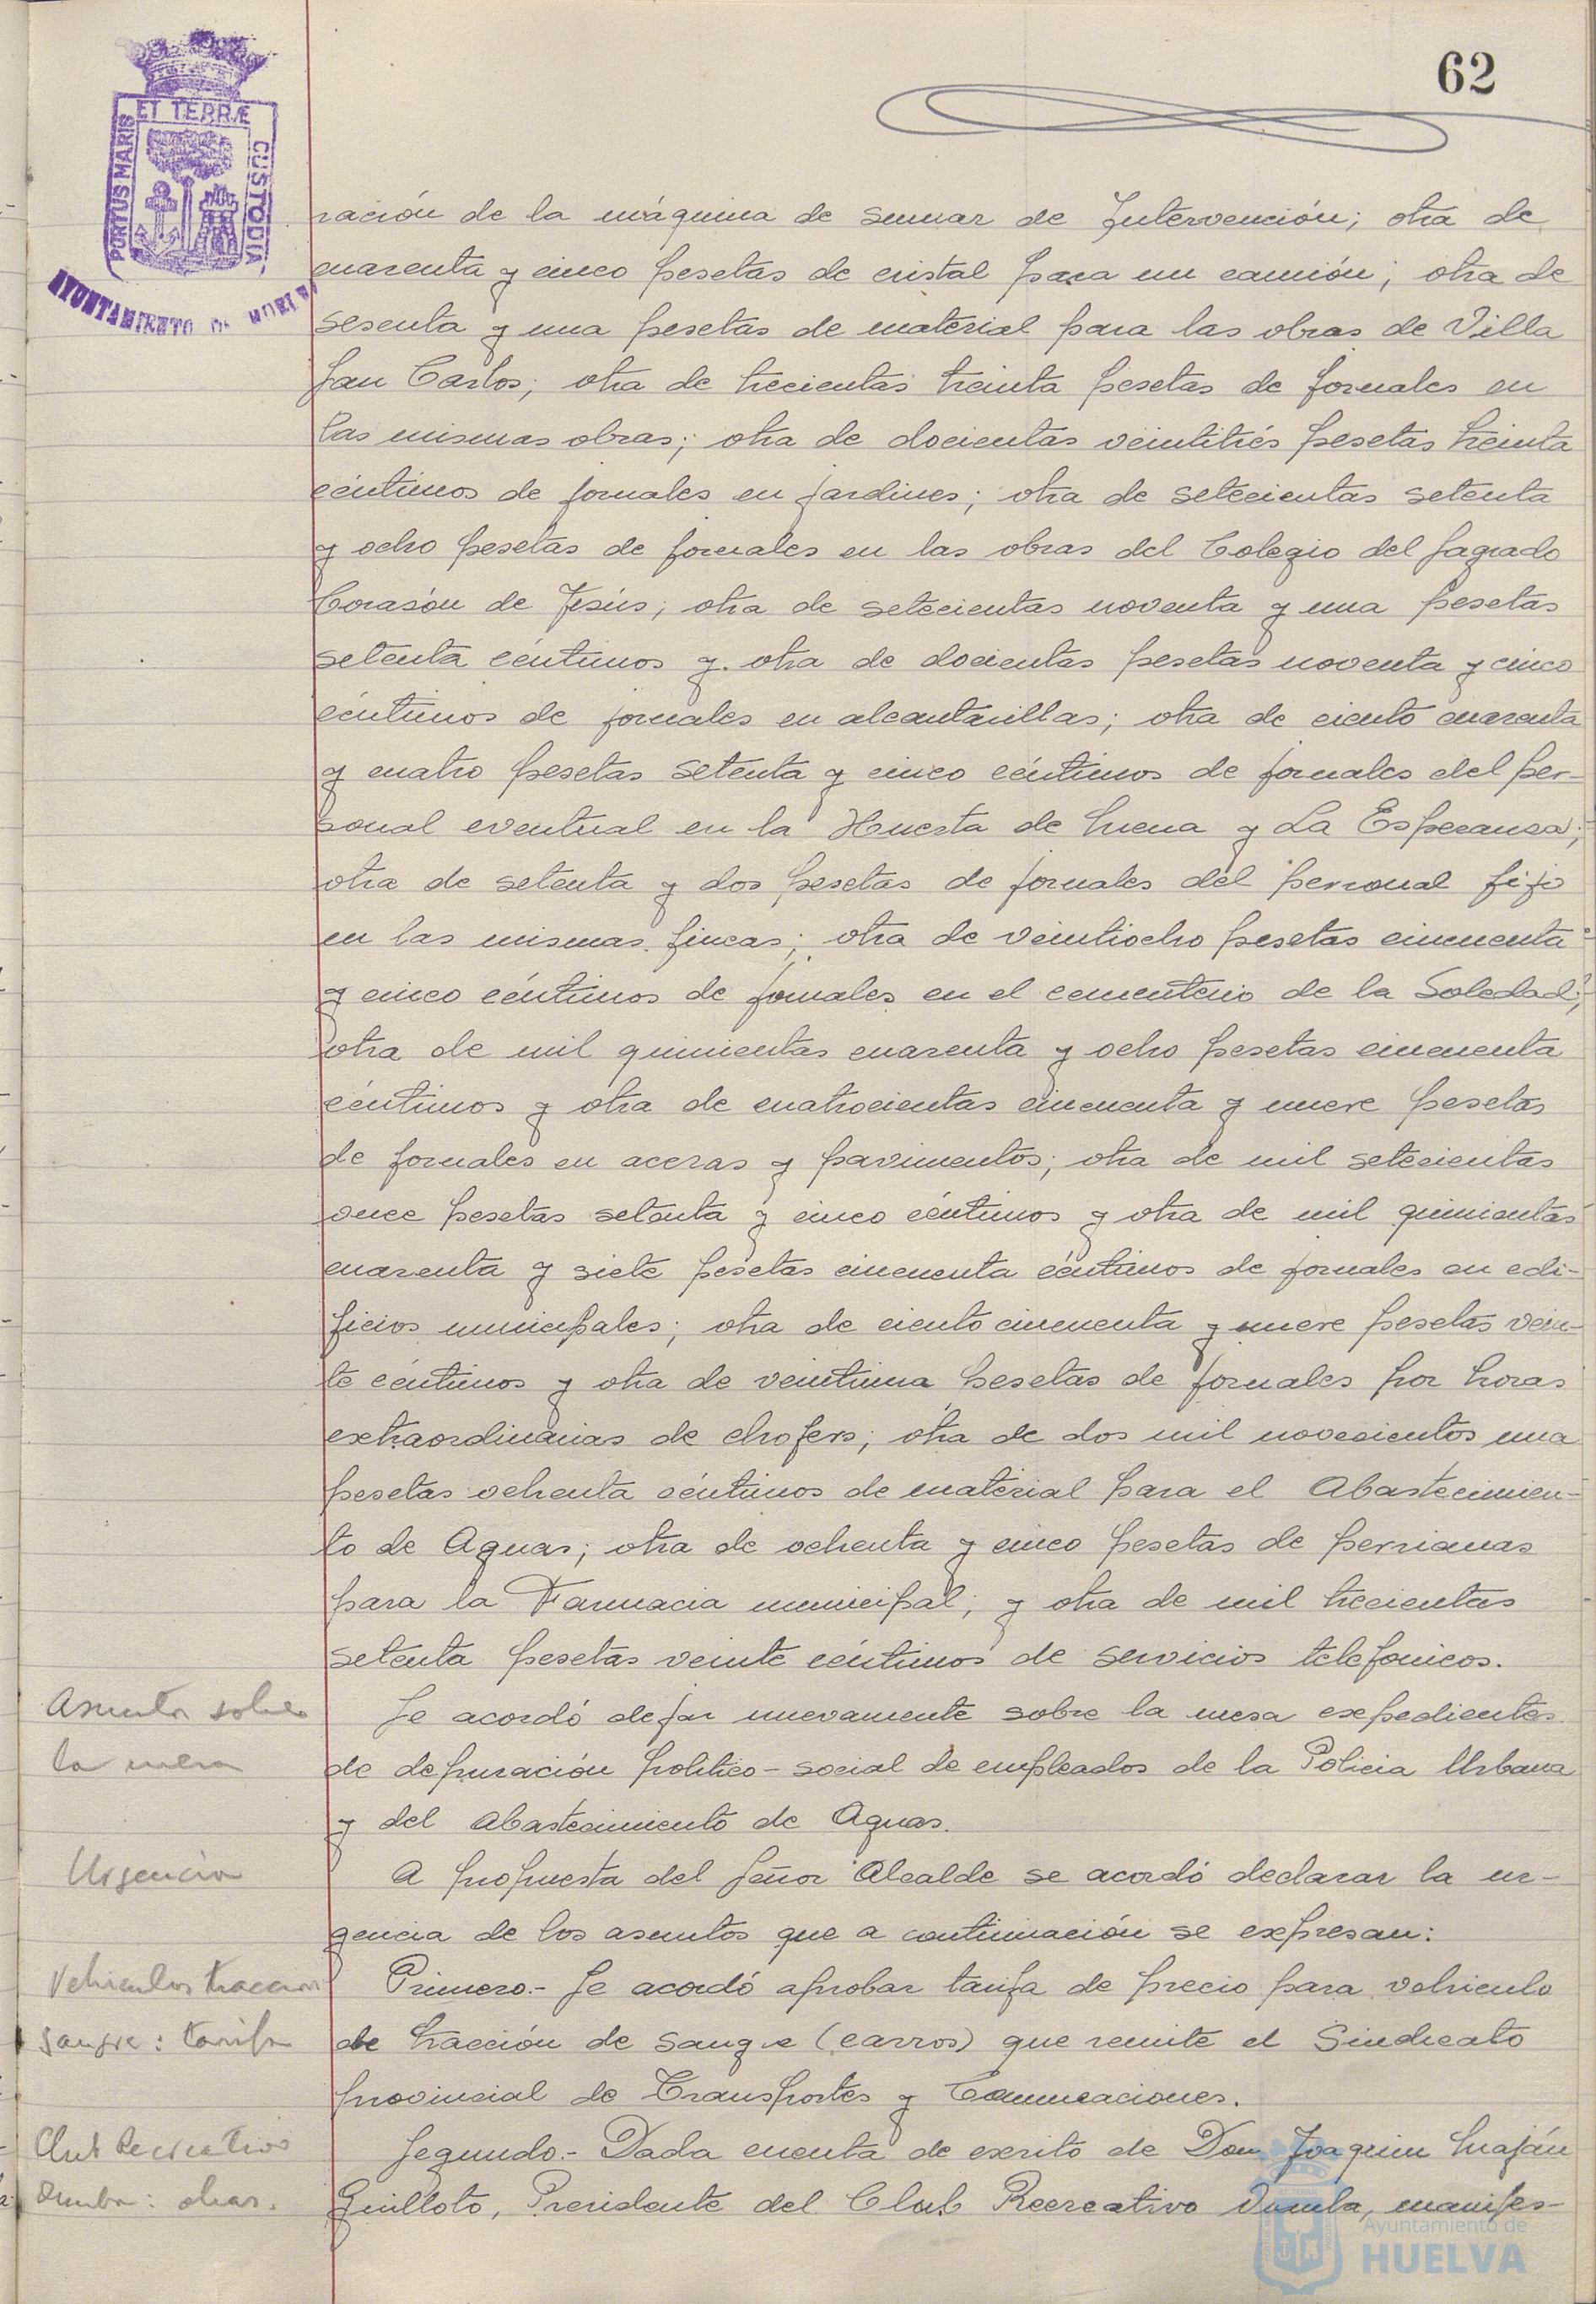 62
PORTUS MARIS ET TERRÆ CUSTODIA
AYUNTAMIENTO DE HUELVA
ración de la máquina de sumar de Intervención; otra de
cuarenta y cinco pesetas de cristal para un camión; otra de
sesenta y una pesetas de material para las obras de Villa
San Carlos; otra de trecientas treinta pesetas de jornales en
las mismas obras; otra de docientas veintitrés pesetas treinta
céntimos de jornales en jardines; otra de setecientas setenta
y ocho pesetas de jornales en las obras del Colegio del Sagrado
Corasón de Jesús; otra de setecientas noventa y una pesetas
setenta céntimos y otra de docientas pesetas noventa y cinco
céntimos de jornales en alcantarillas; otra de ciento cuarenta
y cuatro pesetas setenta y cinco céntimos de jornales del per-
sonal eventual en la Huerta de Mena y La Esperansa;
otra de setenta y dos pesetas de jornales del personal fijo
en las mismas fincas; otra de veintiocho pesetas cincuenta
y cinco céntimos de jornales en el cementerio de la Soledad;
otra de mil quinientas cuarenta y ocho pesetas cincuenta
céntimos y otra de cuatrocientas cincuenta y nueve pesetas
de jornales en aceras y pavimentos; otra de mil setecientas
once pesetas setenta y cinco céntimos y otra de mil quinientas
cuarenta y siete pesetas cincuenta céntimos de jornales en edi-
ficios municipales; otra de ciento cincuenta y nueve pesetas vein-
te céntimos y otra de veintiuna pesetas de jornales por horas
extraordinarias de chofers; otra de dos mil novecientos una
pesetas ochenta céntimos de material para el Abastecimien-
to de Aguas; otra de ochenta y cinco pesetas de persianas
para la Farmacia municipal; y otra de mil trecientas
setenta pesetas veinte céntimos de servicios telefonicos.
Asuntos sobre
la mesa
Se acordó dejar nuevamente sobre la mesa expedientes
de depuración politico-social de empleados de la Policia Urbana
y del Abastecimiento de Aguas.
Urgencia
A propuesta del Señor Alcalde se acordó declarar la ur-
gencia de los asuntos que a continuación se expresan:
Vehiculos traccion
sangre: tarifa
Primero.- Se acordó aprobar tarifa de precio para vehiculo
de tracción de sangre (carros) que remite el Sindicato
provincial de Transportes y Comunicaciones.
Club Recreativo
Onuba: obras.
Segundo.- Dada cuenta de escrito de Don Joaquin
Guilloto, Presidente del Club Recreativo Onuba, manifes-
Ayuntamiento de
HUELVA